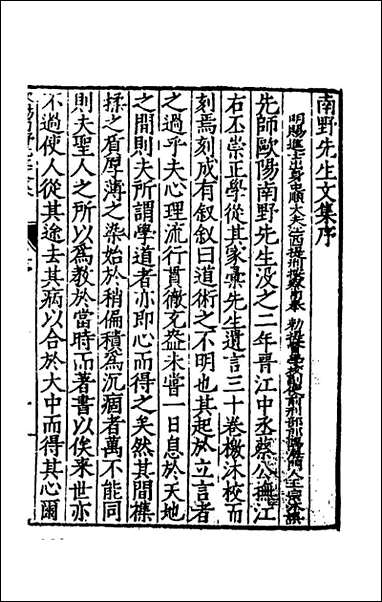 南野先生文集序
明賜進士出身中順大夫江西提刑按察司奉 勅提督學校副使前刑部郎中門人王宗沐撰
先師歐陽南野先生没之二年晋江中丞蔡公撫江
右丕崇正學從其家彙先生遺言三十卷檄沐校而
刻焉刻成有叙叙曰道術之不明也其起於立言者
之過乎夫心理流行貫徹充盈未嘗一日息於天地
之間則夫所謂學道者亦即心而得之矣然其間襍
揉之有厚薄之染始於稍偏積爲沉痼者萬不能同
則夫聖人之所以爲教於當時而著書以俟来世亦
不過使人從其途去其病以合於大中而得其心爾